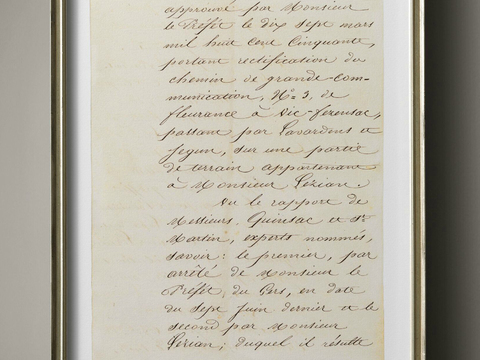 approuvé par Monsieur
le Préfet le dix sept mars
mil huit cent cinquante,
portant rectification du
chemin de grande-com-
munication, N° 3, de
fleurance à Vic-fezensac,
passant par Lavardens et
Jegun, sur une partie
de terrain appartenant
à Monsieur Lézian.
Vu le rapport de
Messieurs Quinsac et St
Martin, experts nommés,
savoir: le premier, par
arrêté de Monsieur le
Préfet, du Gers, en date
du sept juin dernier et le
second par Monsieur
Lézian; duquel il résulte